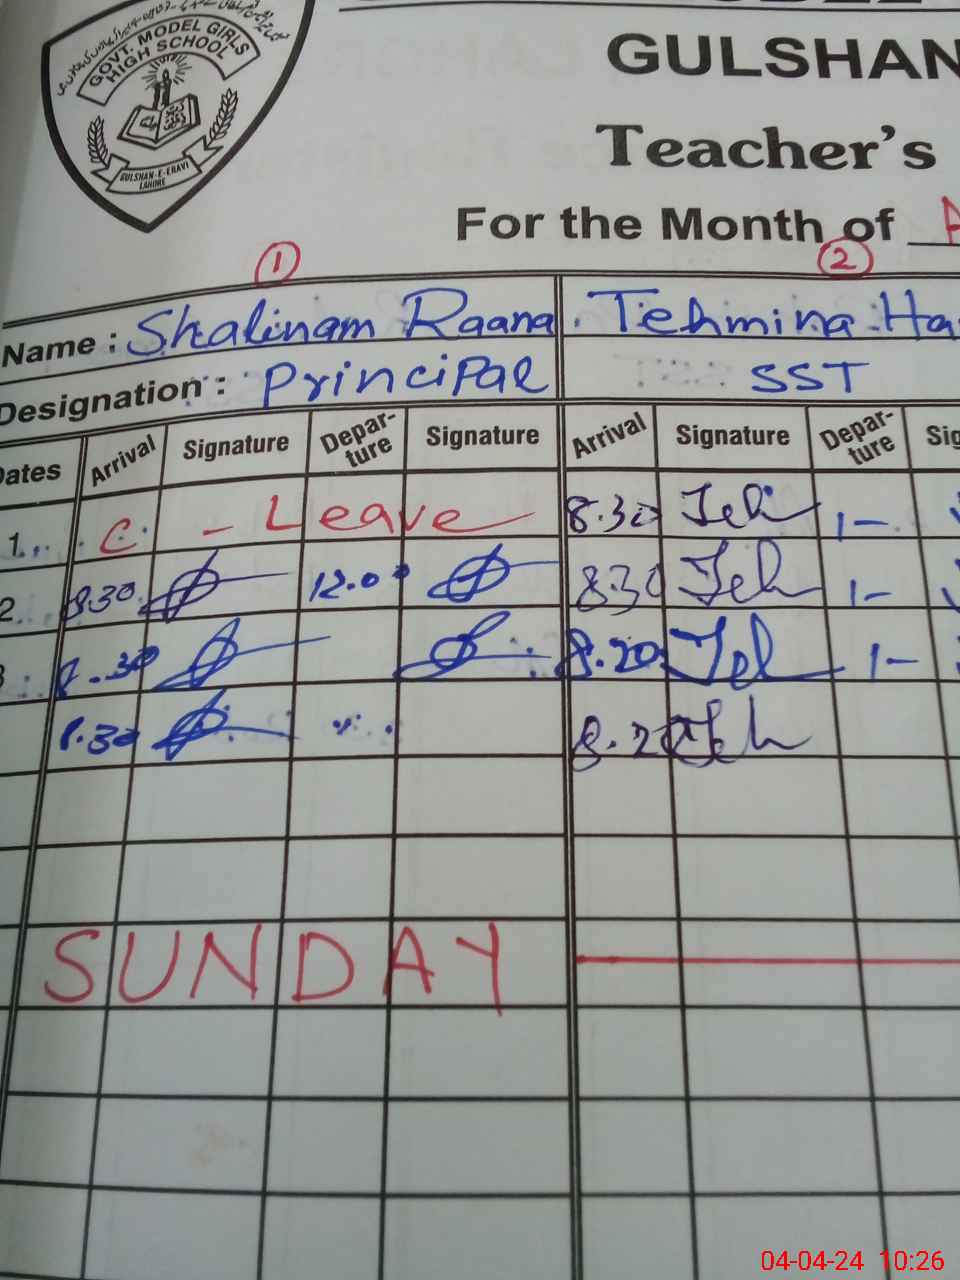 GOVT. MODEL GIRLS
HIGH SCHOOL
GULSHAN-E-ERAVI
LAHORE
GULSHAN
Teacher's
For the Month of
1 2
Name : Shalinam Raana. Tehmina Ha
Designation : Principal SST
Dates Arrival Signature Depar-ture Signature Arrival Signature Depar-ture Sig
1 C. - Leave 8.30 Teh 1-
2 8.30 12.00 8.30 Teh 1-
3 8.30 8.20 Teh 1-
8.30 8.20 Teh
SUNDAY
04-04-24 10:26